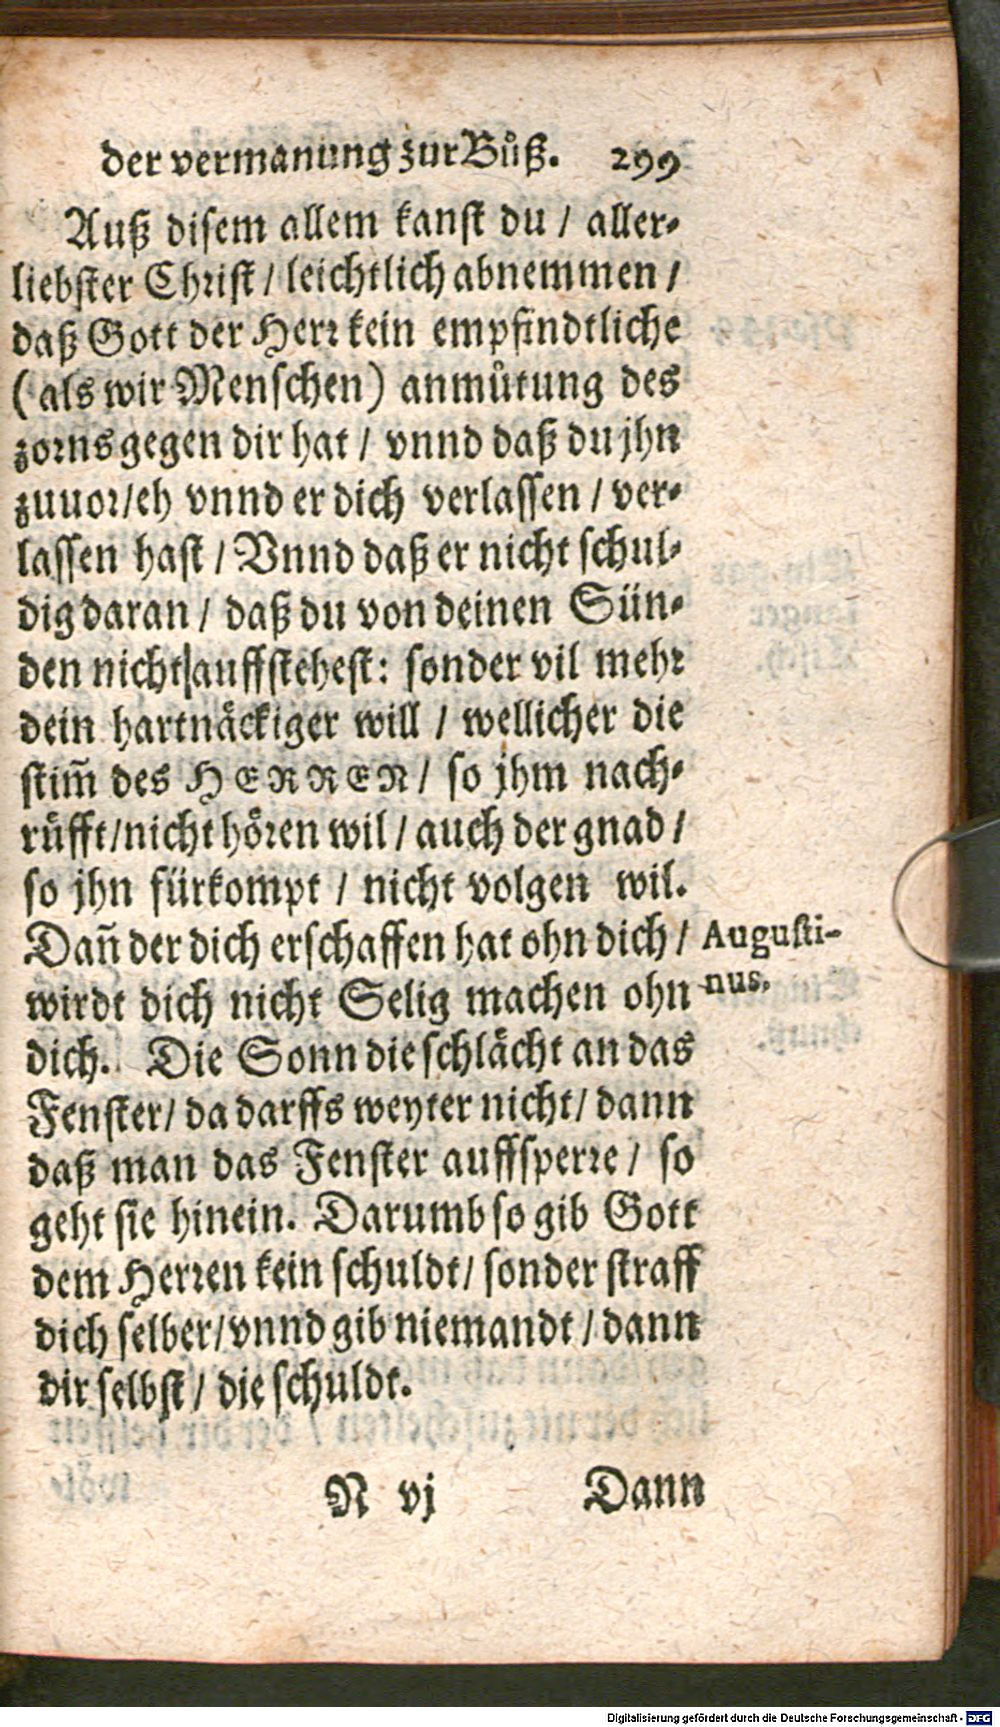 der vermanung zur Bůß. 299
Auß disem allem kanst du / aller-
liebster Christ / leichtlich abnemmen /
daß Gott der Herr kein empfindtliche
(als wir Menschen) anmůtung des
zorns gegen dir hat / vnnd daß du jhn
zuuor/eh vnnd er dich verlassen / ver-
lassen hast / Vnnd daß er nicht schul-
dig daran / daß du von deinen Sün-
den nicht auffstehest: sonder vil mehr
dein hartnäckiger will / wellicher die
stim̃ des HERREN / so jhm nach-
růfft/nicht hören wil / auch der gnad /
so jhn fürkompt / nicht volgen wil.
Dañ der dich erschaffen hat ohn dich / Augusti-
wirdt dich nicht Selig machen ohn nus.
dich. Die Sonn die schlächt an das
Fenster/ da darffs weyter nicht/ dann
daß man das Fenster auffsperre / so
geht sie hinein. Darumb so gib Gott
dem Herren kein schuldt/ sonder straff
dich selber/vnnd gib niemandt / dann
dir selbst / die schuldt.
N vj Dann
Digitalisierung gefördert durch die Deutsche Forschungsgemeinschaft - DFG